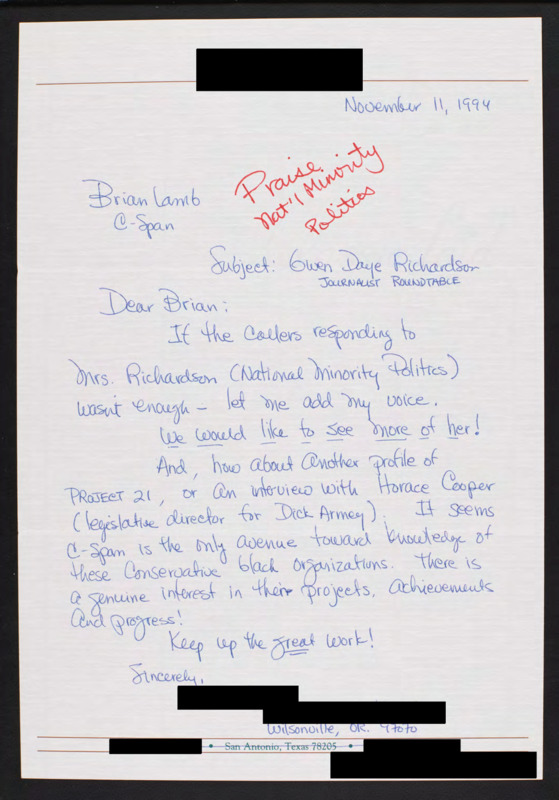 November 11, 1994
Praise
Nat'l Minority
Politics
Brian Lamb
C-Span
Subject: Gwen Daye Richardson
JOURNALIST ROUNDTABLE
Dear Brian:
If the callers responding to
Mrs. Richardson (National Minority Politics)
wasn't enough - let me add my voice.
We would like to see more of her!
And, how about another profile of
PROJECT 21, or an interview with Horace Cooper
(legislative director for Dick Armey). It seems
C-Span is the only avenue toward knowledge of
these Conservative black organizations. There is
a genuine interest in their projects, achievements
and progress!
Keep up the great work!
Sincerely,
Wilsonville, OR. 97070
• San Antonio, Texas 78205 •